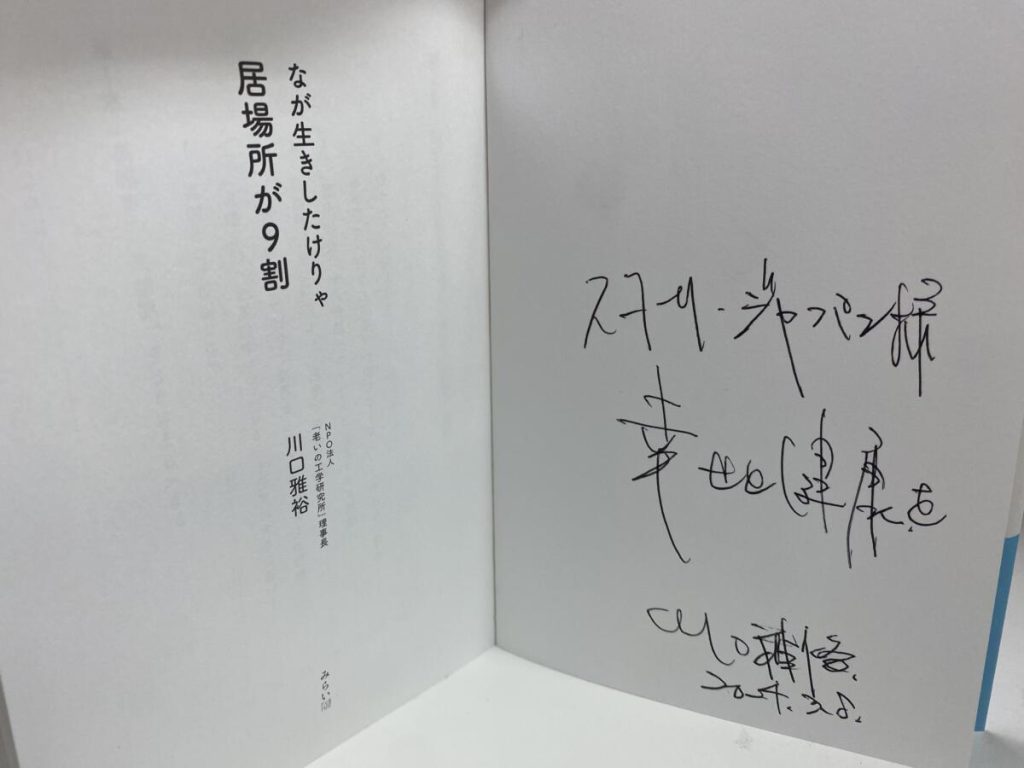 なが生きしたけりゃ
居場所が9割
NPO法人
「老いの工学研究所」理事長
川口雅裕
みらい
ジャパン様
幸せと健康を
川口雅裕
2024.3.8.